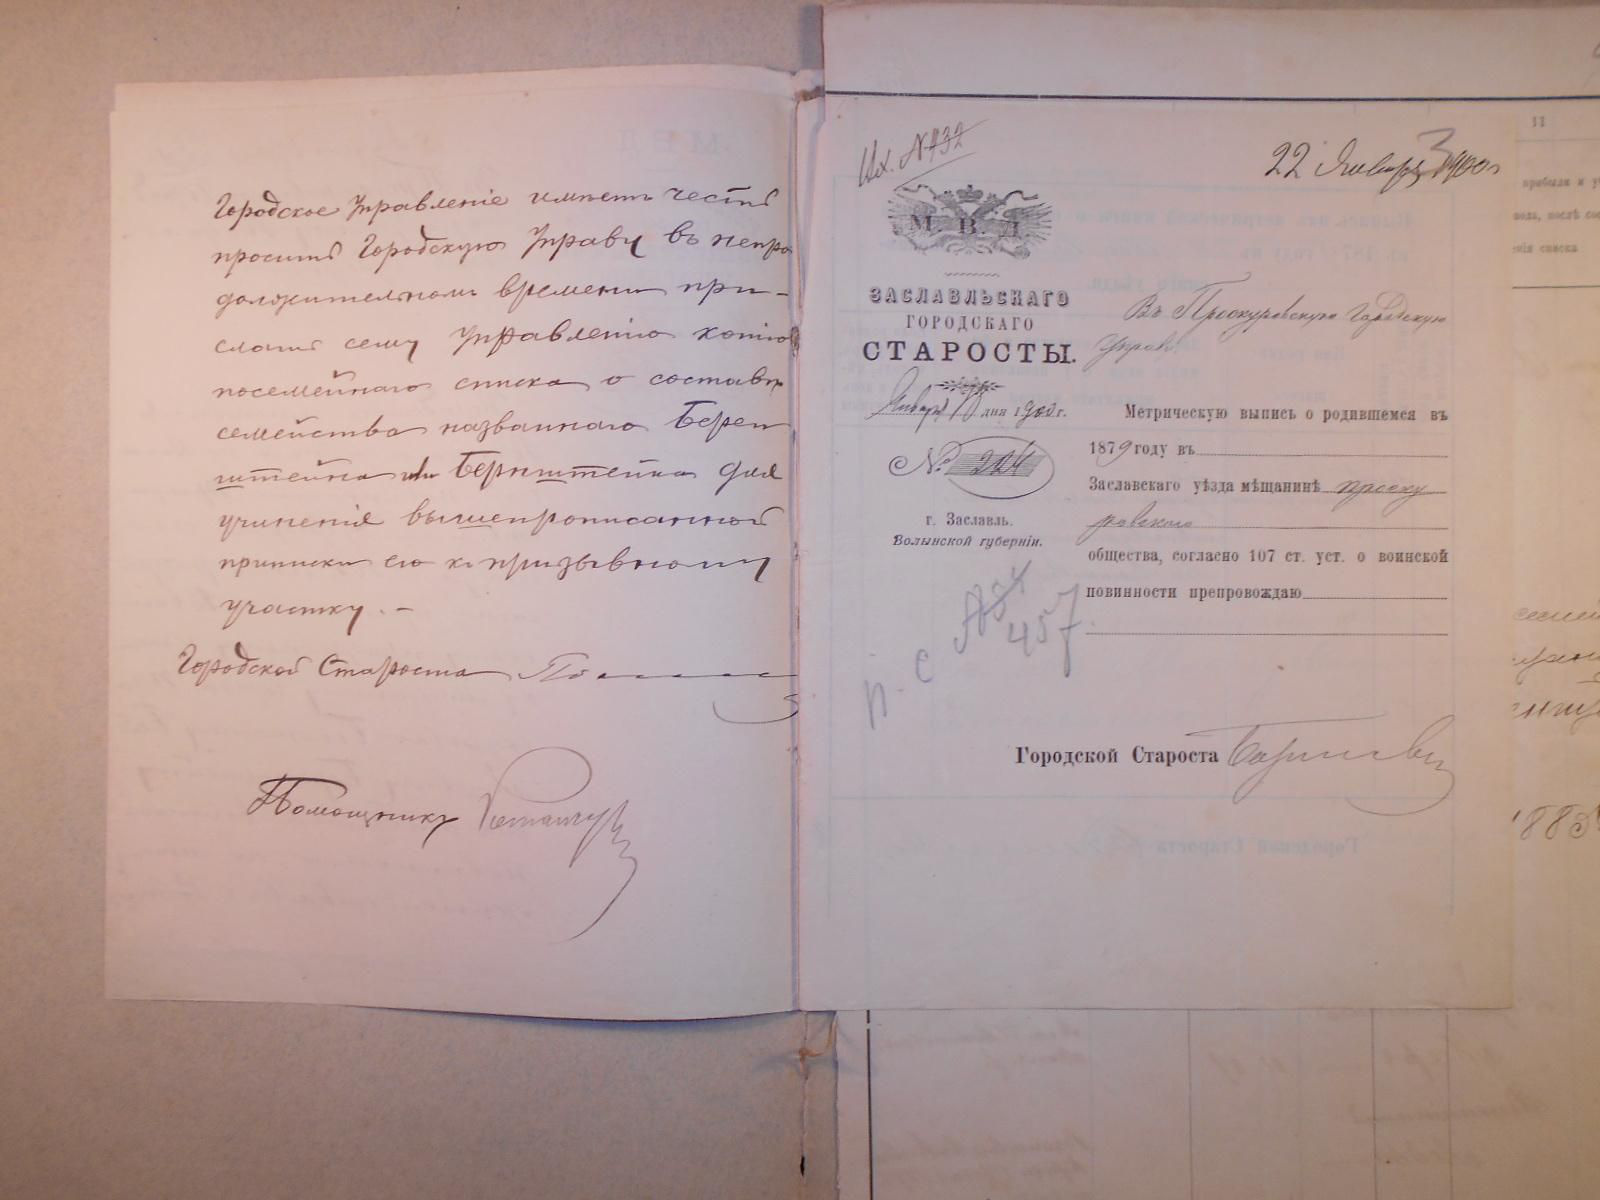 Городское Управленіе имѣетъ честь
проситъ Городскую Управу въ непро
должительномъ времени при-
слать сему Управленію копію
посемейнаго списка о составѣ
семейства названнаго Берен
штейна или Бернштейна для
учиненія вышепрописанной
приписки его къ призывному
участку. –
Городской Староста
Помощникъ
Вх. №432
22 Января 1900 г
3
М. В. Д.
ЗАСЛАВЛЬСКАГО
ГОРОДСКАГО
СТАРОСТЫ.
Января дня 1900 г.
№ 204
г. Заславль.
Волынской губерніи.
Въ Проскуровскую Городскую
Управу
Метрическую выпись о родившемся въ
1879 году въ
Заславскаго уѣзда мѣщанинѣ проску
ровскаго
общества, согласно 107 ст. уст. о воинской
повинности препровождаю
п. с
457
Городской Староста
11
прибыли и у
пола, послѣ сос
енія списка
1885